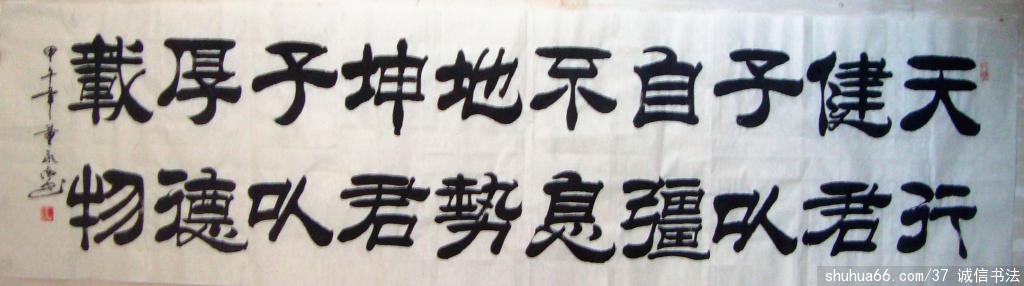 天行
健君
子以
自彊
不息
地勢
坤君
子以
厚德
載物
甲午年
shuhua66.com/37 诚信书法